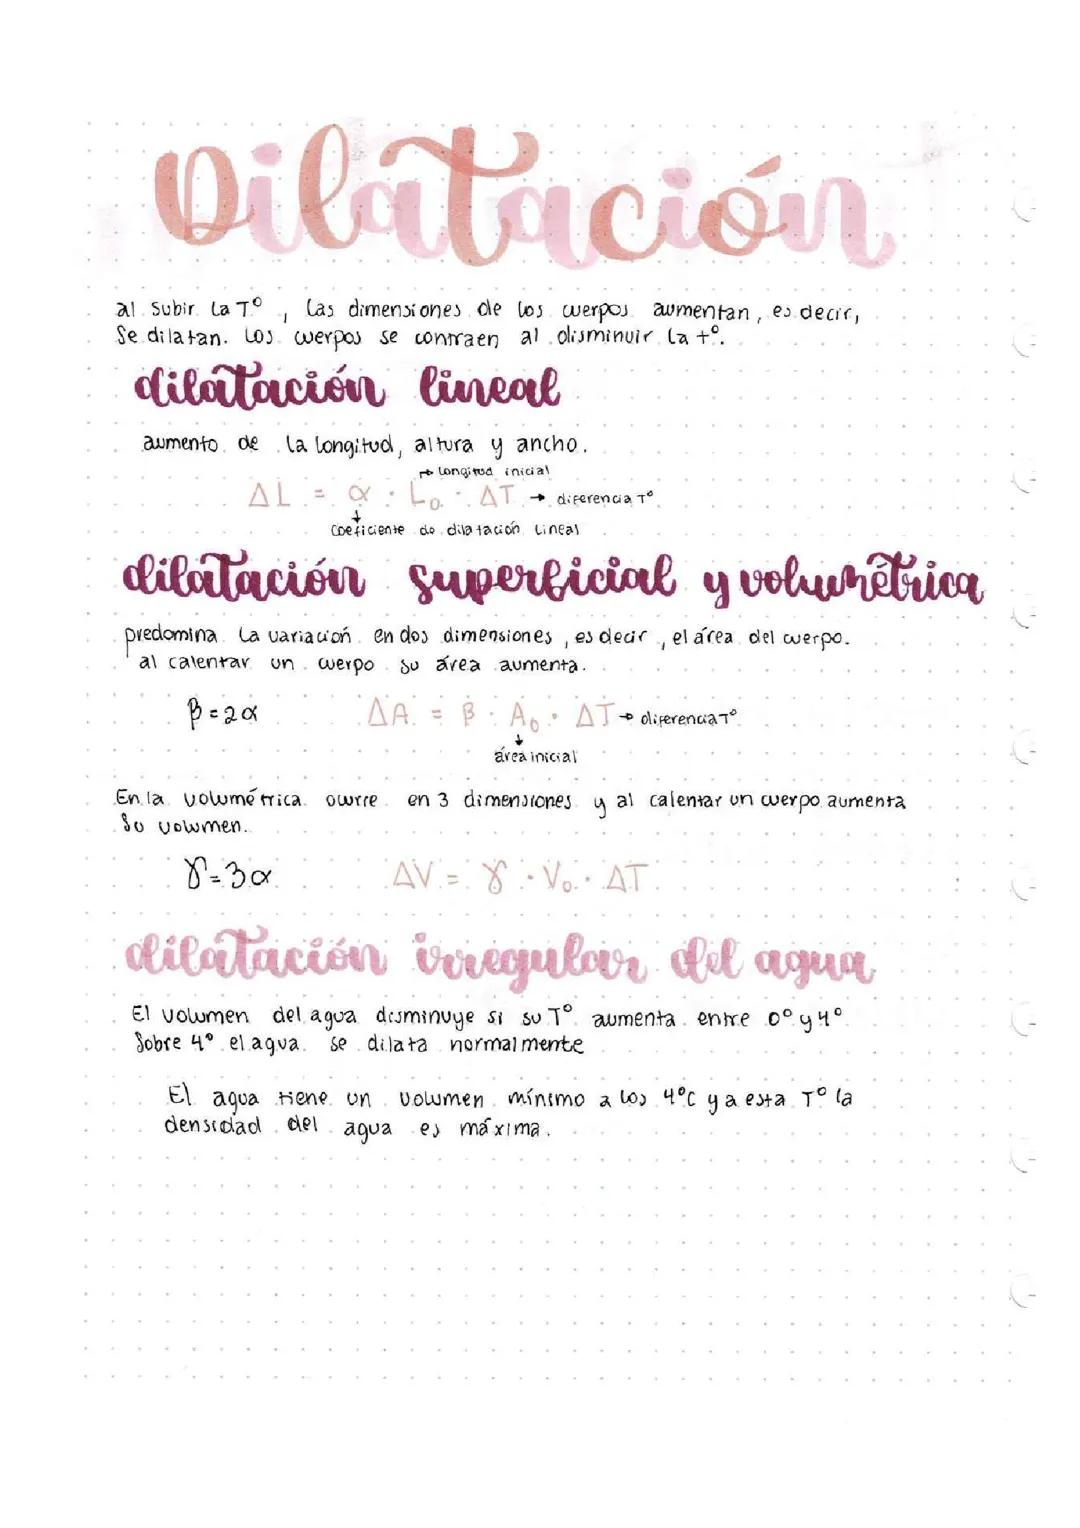 Dilatación
al subir la T°, las dimensiones de los cuerpos aumentan, es decir,
se dilatan. Los cuerpos se contraen al disminuir la t°.
dilatación lineal
aumento de la longitud, altura y ancho.
→ longitud inicial
ΔL = α · L₀ · ΔT → diferencia T°
↓
coeficiente de dilatación lineal
dilatación superficial y volumétrica
predomina la variación en dos dimensiones, es decir, el área del cuerpo.
al calentar un cuerpo su área aumenta.
β = 2α ΔA = β · A₀ · ΔT → diferencia T°
↓
área inicial
En la volumétrica ocurre en 3 dimensiones y al calentar un cuerpo aumenta
su volumen.
γ = 3α ΔV = γ · V₀ · ΔT
dilatación irregular del agua
El volumen del agua disminuye si su T° aumenta entre 0° y 4°
Sobre 4° el agua se dilata normalmente
El agua tiene un volumen mínimo a los 4°C y a esta T° la
densidad del agua es máxima.